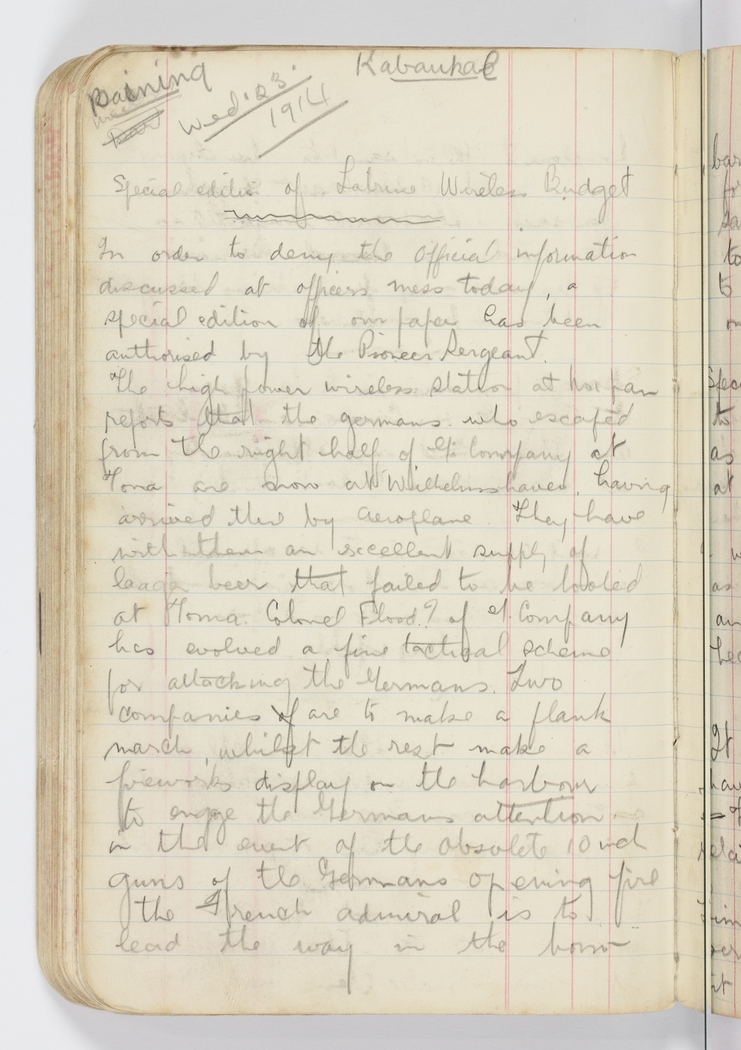 Raining
Kabaukal
Wed. 23.
1914
Special edition of Latrine Wireless Budget
In order to deny the official information
discussed at officers mess today, a
special edition of our paper has been
authorised by the Pioneer Sergeant.
The high power wireless station at
reports that the germans who escaped
from the right half of G Company at
Toma are now at Wilhelmshaven, having
arrived there by aeroplane. They have
with them an excellent supply of
laager beer that failed to be looted
at Toma. Colonel Flood? of Company
has evolved a fine tactical scheme
for attacking the Germans. Two
companies of are to make a flank
march, whilst the rest make a
fireworks display on the harbour
to engage the Germans attention
in the event of the obsolete 10 inch
guns of the Germans opening fire
the French admiral is to
lead the way in the
bar
to
to
Spec
to
as
at
as
an
It
hav